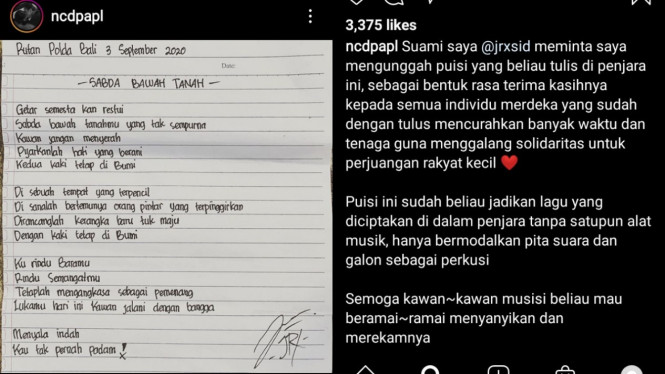 ncdpapl
Rutan Polda Bali 3 September 2020
Date:
- SABDA BAWAH TANAH -
Getar semesta kan restui
Sabda bawah tanahmu yang tak sempurna
Kawan jangan menyerah
Pijarkanlah hati yang berani
Kedua kaki tetap di Bumi
Di sebuah tempat yang terpencil
Di sanalah bertemunya orang pintar yang terpinggirkan
Dirancanglah kerangka baru tuk maju
Dengan kaki tetap di Bumi
Ku rindu Baramu
Rindu Semangatmu
Tetaplah mengangkasa sebagai pemenang
Lukamu hari ini Kawan jalani dengan bangga
Menyala indah
Kau tak pernah padam!
JRX
3,375 likes
ncdpapl Suami saya @jrxsid meminta saya
mengunggah puisi yang beliau tulis di penjara
ini, sebagai bentuk rasa terima kasihnya
kepada semua individu merdeka yang sudah
dengan tulus mencurahkan banyak waktu dan
tenaga guna menggalang solidaritas untuk
perjuangan rakyat kecil ❤️
Puisi ini sudah beliau jadikan lagu yang
diciptakan di dalam penjara tanpa satupun alat
musik, hanya bermodalkan pita suara dan
galon sebagai perkusi
Semoga kawan~kawan musisi beliau mau
beramai~ramai menyanyikan dan
merekamnya